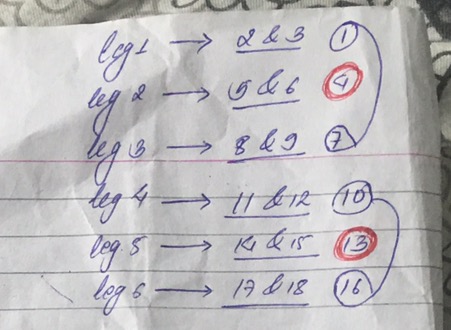 leg 1 → 2 & 3 1
leg 2 → 5 & 6 4
leg 3 → 8 & 9 7
leg 4 → 11 & 12 10
leg 5 → 14 & 15 13
leg 6 → 17 & 18 16